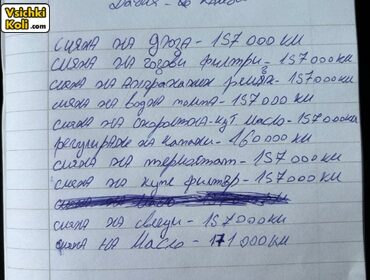 Vsichki
Koli.com
смяна на дюза - 157000 км
смяна на горови филтри - 157000 км
смяна на ангренажния ремък - 157000 км
смяна на водна помпа - 157000 км
смяна на скоростна кут масло - 157000 км
регулиране на клапани - 160000 км
смяна на термостат - 157000 км
смяна на купе филтър - 157000 км
смяна на свещи - 157000 км
смяна на масло - 171000 км